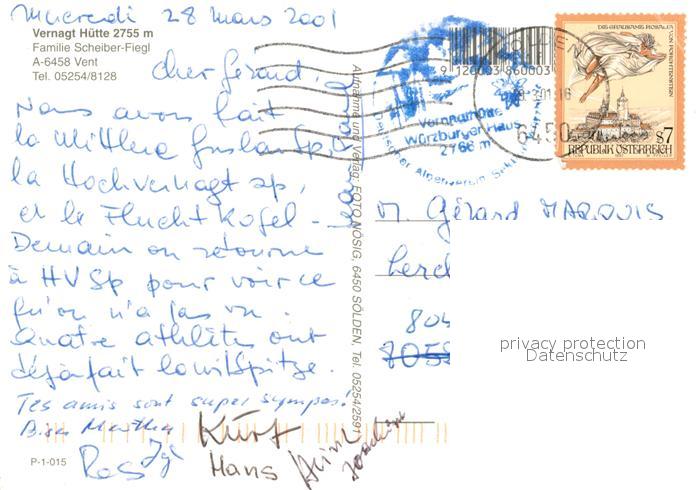 Mercredi 28 Mars 2001
Vernagt Hütte 2755 m
Familie Scheiber-Fiegl
A-6458 Vent
Tel. 05254/8128
Cher Gérard,
Nous avons fait
la Mittlere
la Hochvernagt sp,
et le Fluchtkogel
Demain on retourne
à HVSp pour voir ce
qu'on n'a pas vu.
Quatre athlètes ont
déjà fait
Tes amis sont super sympas!
Bise Martha
Kurt
Hans
P-1-015
Aufnahme und Verlag: FOTO NOSIG, 6450 SÖLDEN, Tel. 05254/2591
9 120003 860003
Vernagthütte
Würzburger Haus
2766 m
Deutscher Alpenverein
6450
DIE GRAUSAME ROSALIA VON FORCHTENSTEIN
S7
REPUBLIK ÖSTERREICH
M. Gérard MARQUIS
805
privacy protection
Datenschutz